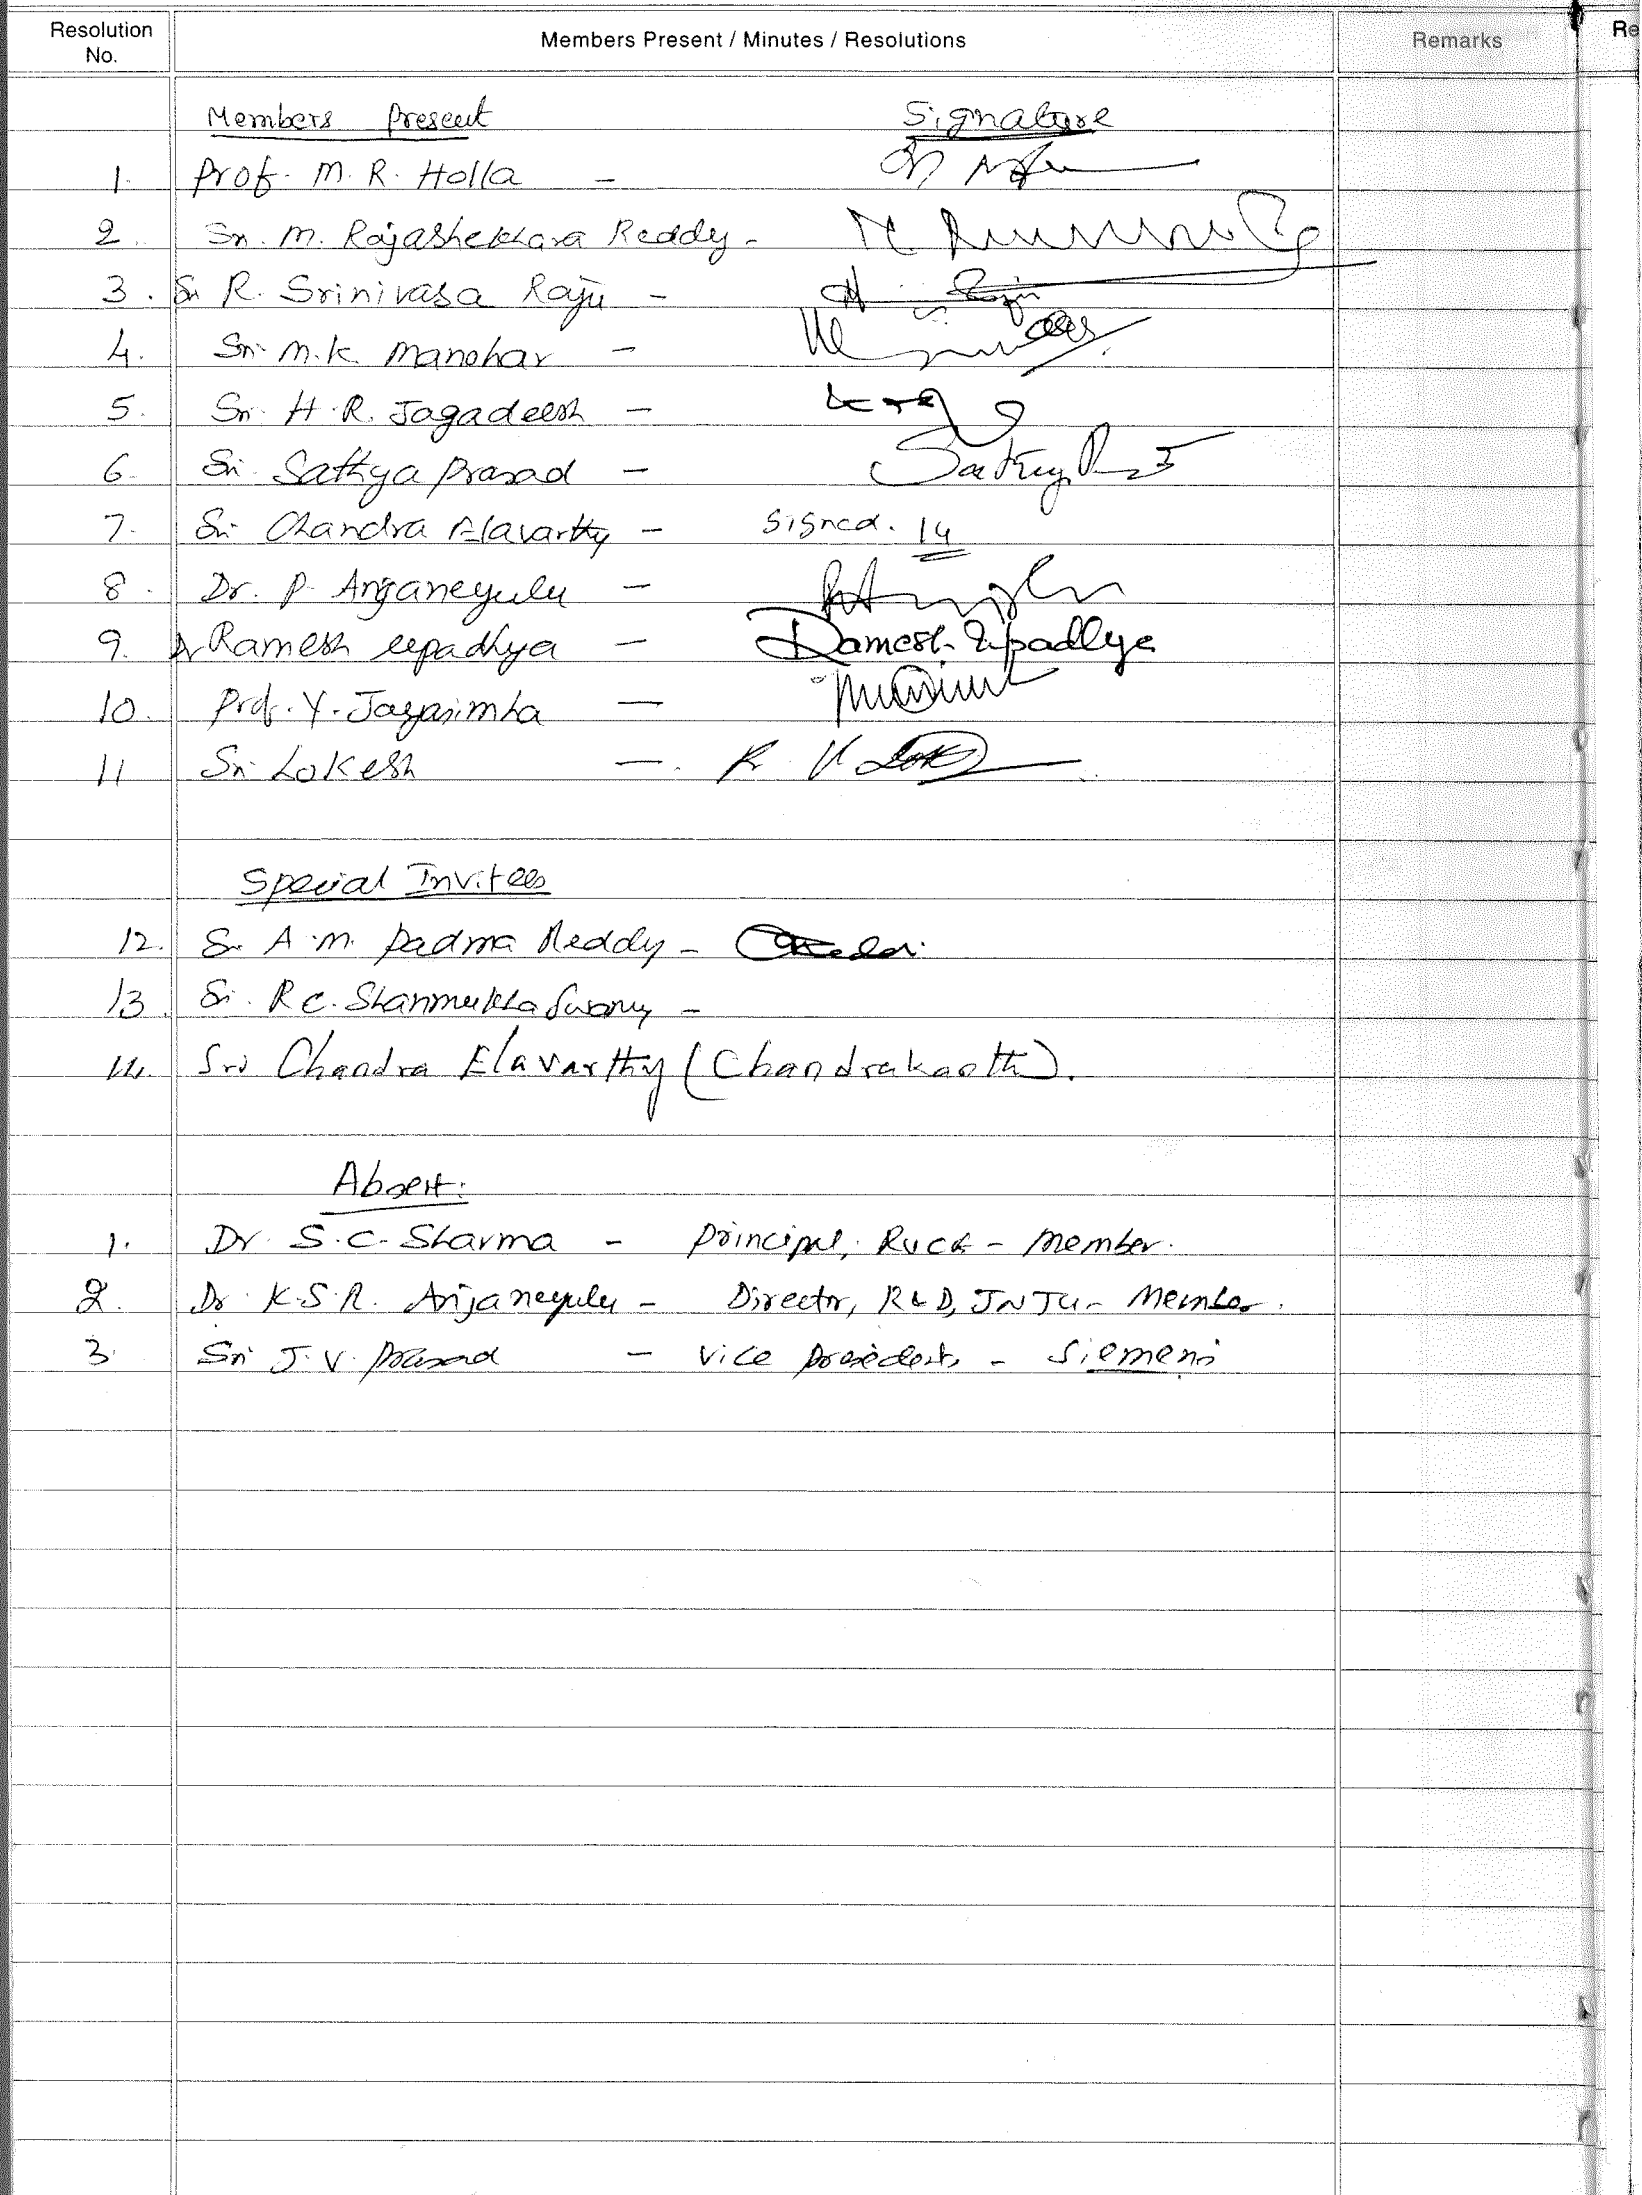 Resolution No. Members Present / Minutes / Resolutions Remarks Re
Members Present Signature
1. Prof. M. R. Holla -
2. Sri. M. Rajashekhara Reddy -
3. Sri R. Srinivasa Raju -
4. Sri. M.K. Manohar -
5. Sri. H.R. Jagadeesh -
6. Sri. Sathya Prasad -
7. Sri Chandra Elavarthy - Signed. 14
8. Dr. P. Anjaneyulu -
9. Dr Ramesh Upadhya - Ramesh Upadhya
10. Prof. Y. Jayasimha -
11 Sri Lokesh -
Special Invitees
12. Sri A.M. Padma Reddy -
13. Sri. R C. Shanmukha Swamy -
14. Sri Chandra Elavarthy (Chandrakanth).
Absent:
1. Dr. S.C. Sharma - Principal, RVCE - Member.
2. Dr. K.S.R. Anjaneyulu - Director, R&D, JNTU - Member.
3. Sri J.V. Prasad - Vice President, - Siemens